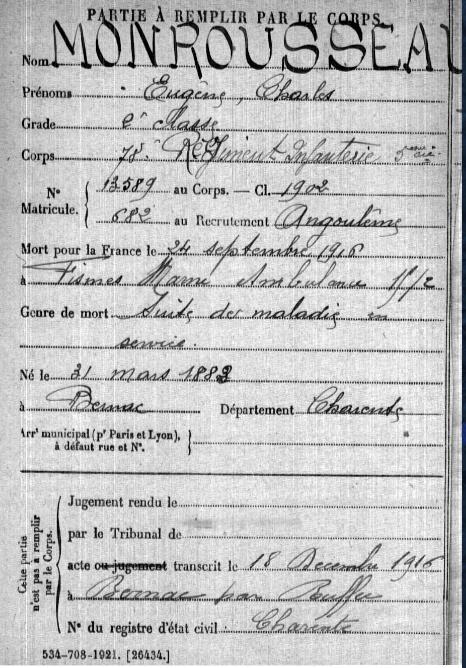 PARTIE À REMPLIR PAR LE CORPS.
Nom MONROUSSEAU
Prénoms Eugène, Charles
Grade 2e classe
Corps 78e Régiment Infanterie 5eme cie
N° Matricule. { 13589 au Corps. — Cl. 1902
682 au Recrutement Angoulême
Mort pour la France le 24 septembre 1916
à Fismes Marne Ambulance
Genre de mort Suite de maladie en
service.
Né le 31 mars 1882
à Bernac Département Charente
Arrt municipal (pr Paris et Lyon), à défaut rue et N°.
Cette partie n'est pas à remplir par le Corps.
Jugement rendu le
par le Tribunal de
acte ou jugement transcrit le 18 Decembre 1916
à Bernac par Ruffec
N° du registre d'état civil : Charente
534-708-1921. [26434.]